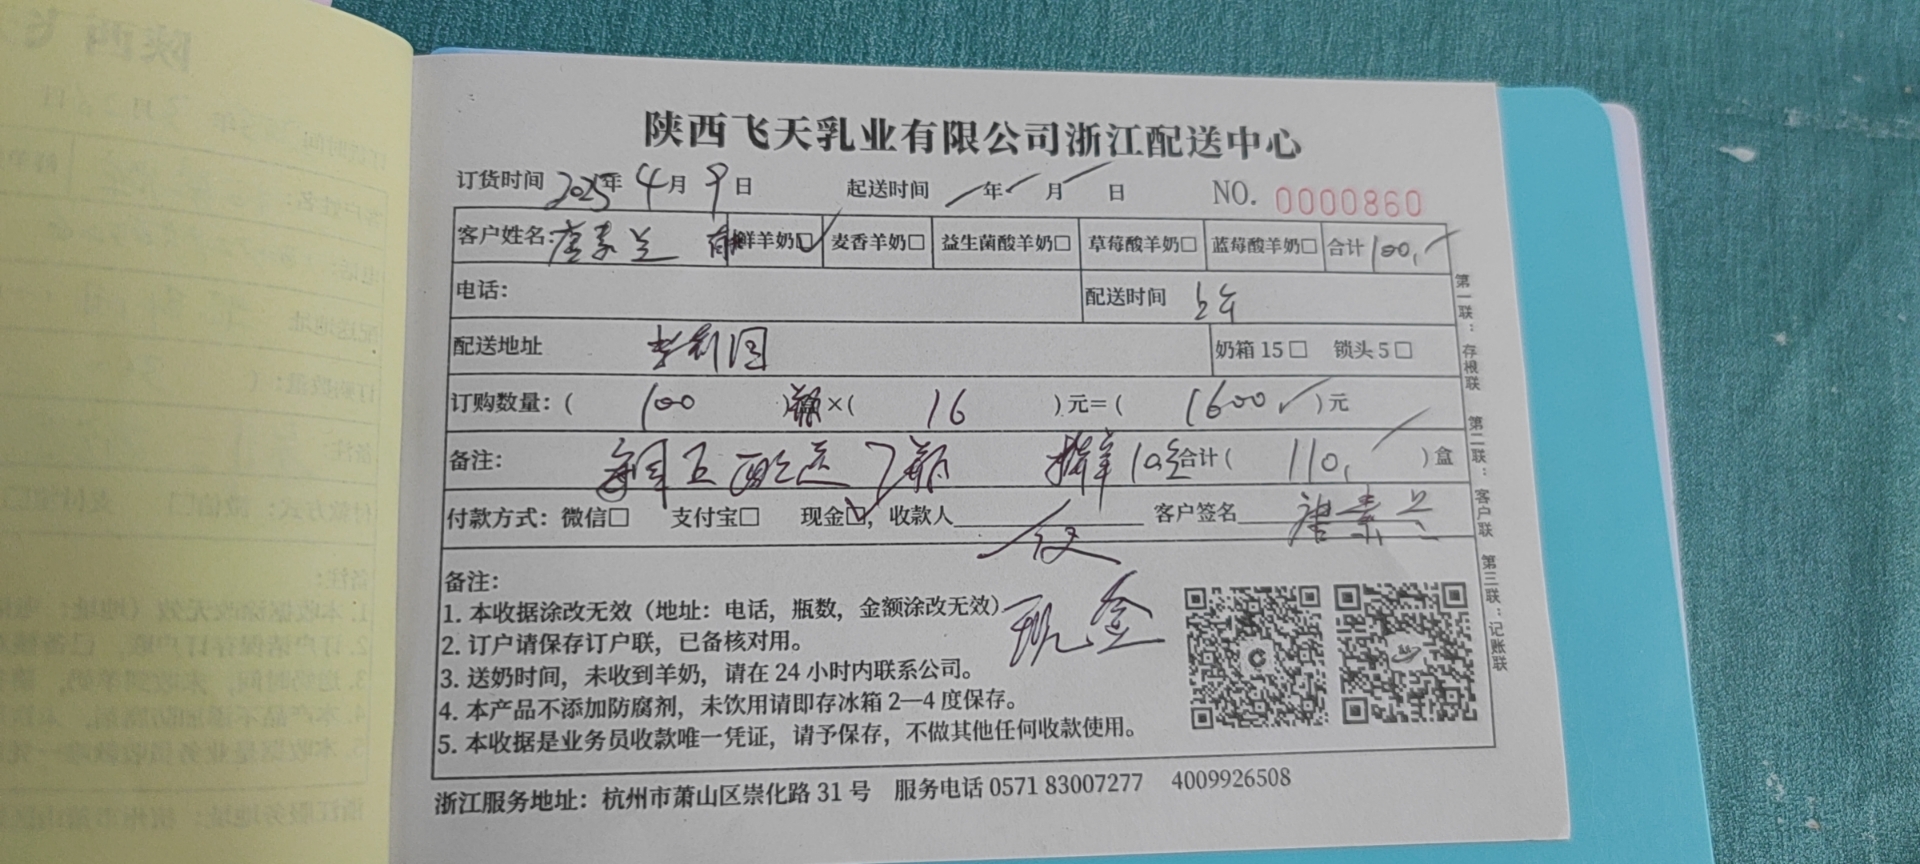 陕西飞天乳业有限公司浙江配送中心
订货时间 2025年 4月 9日 起送时间 年 月 日 NO. 0000860
客户姓名: 唐素兰 鲜羊奶☑ 麦香羊奶□ 益生菌酸羊奶□ 草莓酸羊奶□ 蓝莓酸羊奶□ 合计 100
电话: 配送时间 上午
配送地址 奶箱 15□ 锁头 5□
订购数量:( 100 )瓶×( 16 )元=( 1600 )元
备注: 每周五配送7瓶 鲜羊10 合计( 110 )盒
付款方式: 微信□ 支付宝□ 现金☑, 收款人 客户签名 唐素兰
现金
备注:
1. 本收据涂改无效（地址: 电话, 瓶数, 金额涂改无效）
2. 订户请保存订户联, 已备核对用。
3. 送奶时间, 未收到羊奶, 请在 24 小时内联系公司。
4. 本产品不添加防腐剂, 未饮用请即存冰箱 2—4 度保存。
5. 本收据是业务员收款唯一凭证, 请予保存, 不做其他任何收款使用。
浙江服务地址: 杭州市萧山区崇化路 31 号 服务电话 0571 83007277 4009926508
第一联: 存根联 第二联: 客户联 第三联: 记账联